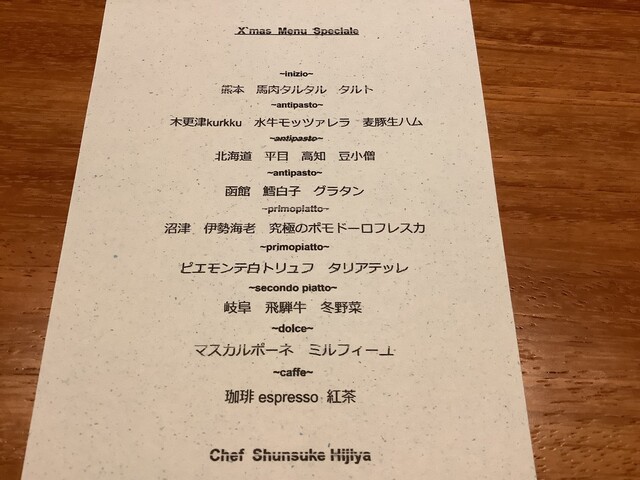 X'mas Menu Speciale
~inizio~
熊本 馬肉タルタル タルト
~antipasto~
木更津kurkku 水牛モッツァレラ 麦豚生ハム
~antipasto~
北海道 平目 高知 豆小僧
~antipasto~
函館 鱈白子 グラタン
~primopiatto~
沼津 伊勢海老 究極のポモドーロフレスカ
~primopiatto~
ピエモンテ白トリュフ タリアテッレ
~secondo piatto~
岐阜 飛騨牛 冬野菜
~dolce~
マスカルポーネ ミルフィーユ
~caffe~
珈琲 espresso 紅茶
Chef Shunsuke Hijiya